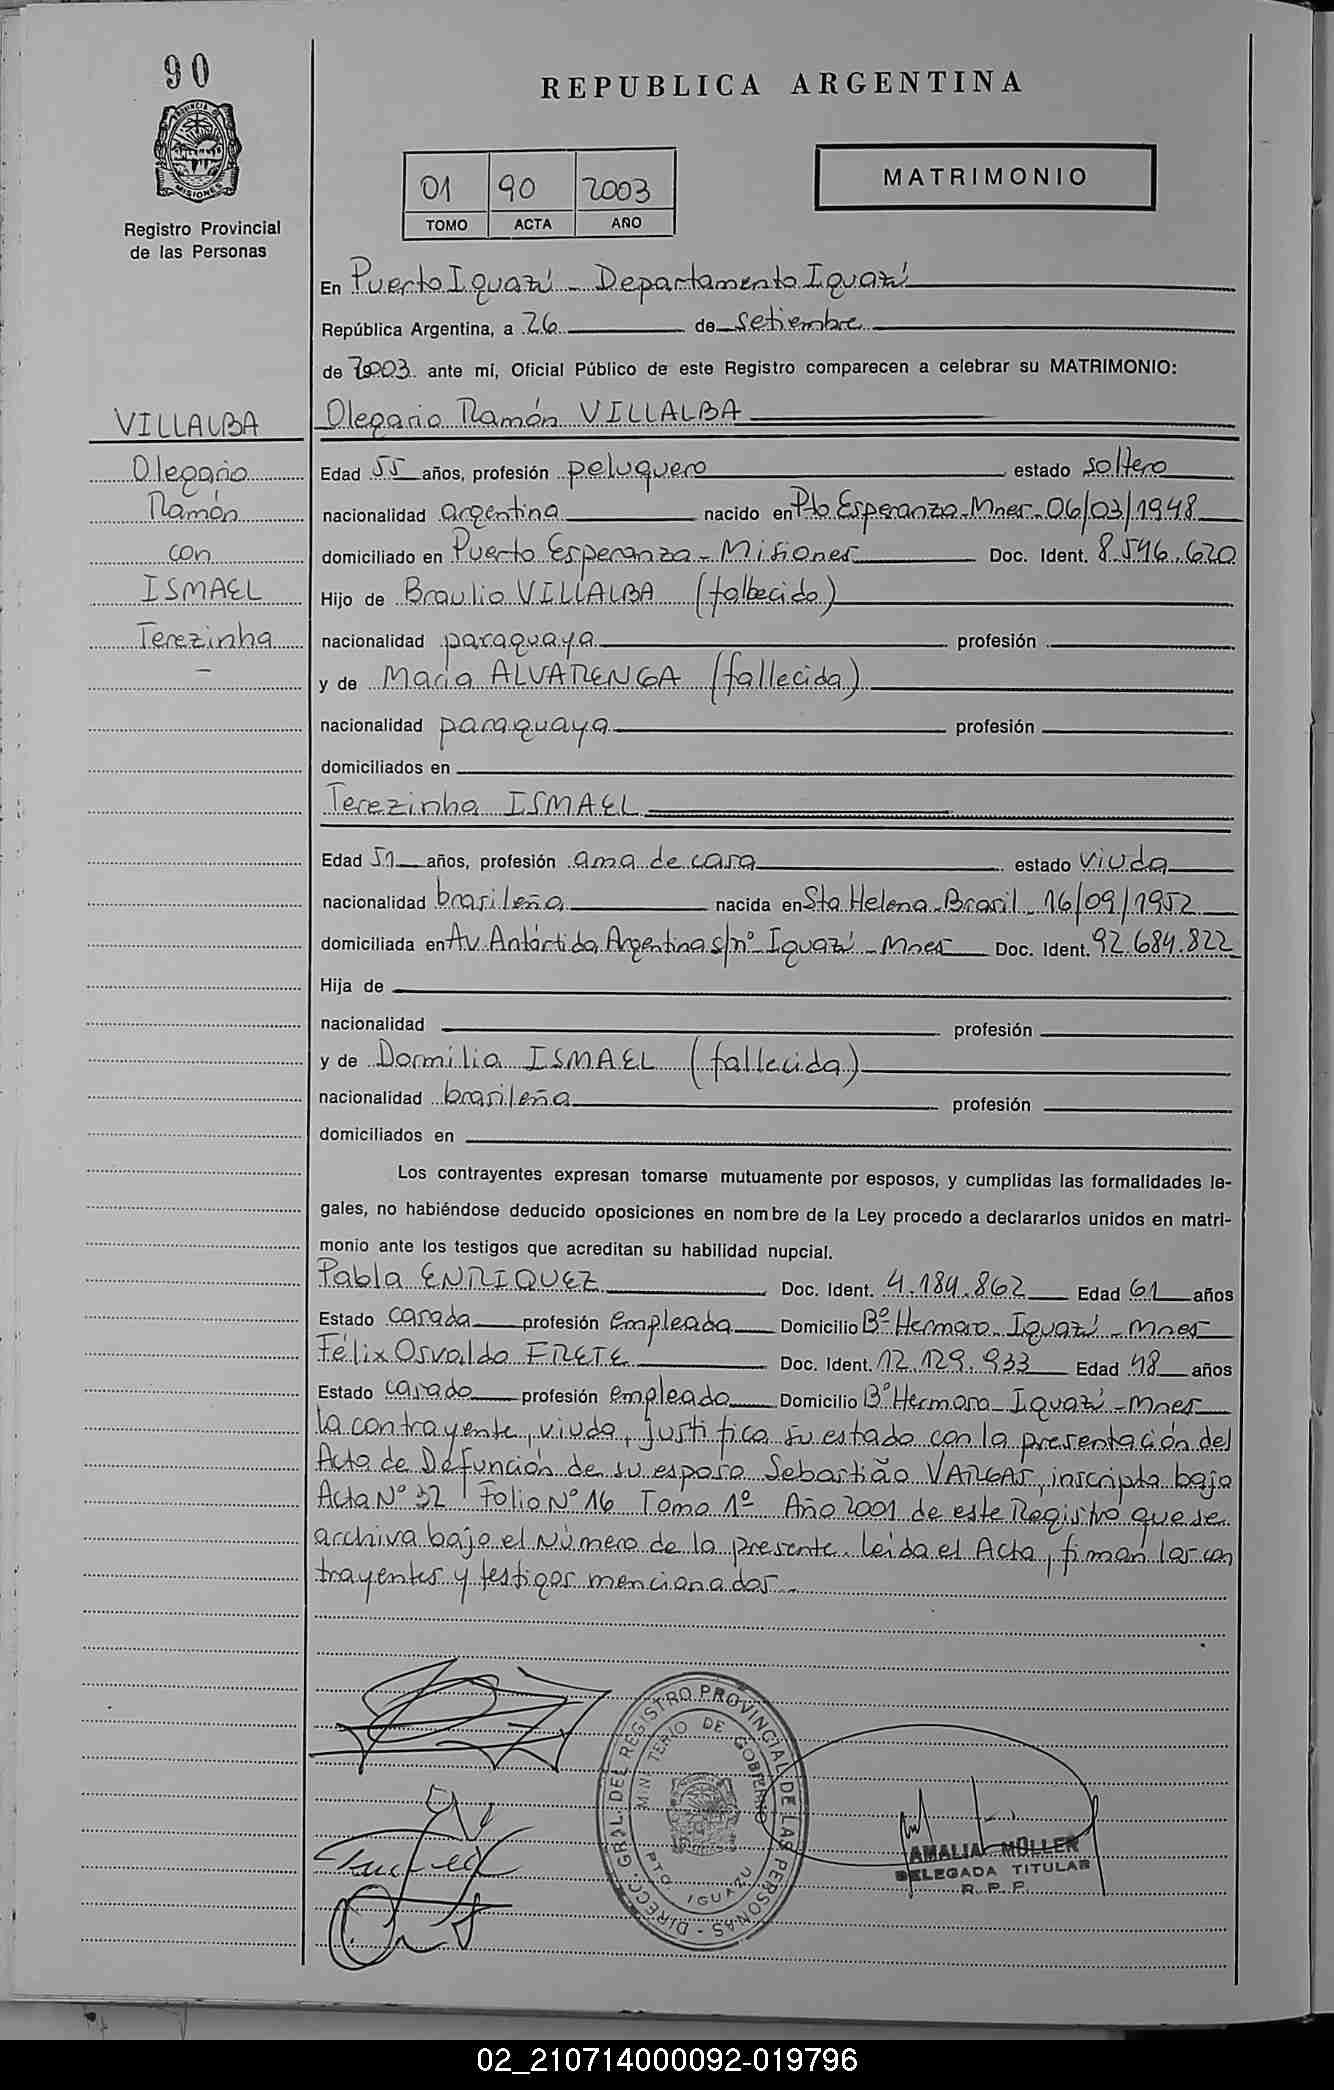 90
PROVINCIA DE MISIONES
Registro Provincial
de las Personas
REPUBLICA ARGENTINA
01 90 2003
TOMO ACTA AÑO
MATRIMONIO
En Puerto Iguazú - Departamento Iguazú
República Argentina, a 26 de setiembre
de 2003 ante mí, Oficial Público de este Registro comparecen a celebrar su MATRIMONIO:
VILLALBA
Olegario
Ramón
con
ISMAEL
Terezinha
-
Olegario Ramón VILLALBA
Edad 55 años, profesión peluquero estado soltero
nacionalidad argentina nacido en Pto Esperanza-Mnes-06/03/1948
domiciliado en Puerto Esperanza-Misiones Doc. Ident. 8.546.620
Hijo de Braulio VILLALBA (fallecido)
nacionalidad paraguaya profesión
y de Maria ALVARENGA (fallecida)
nacionalidad paraguaya profesión
domiciliados en
Terezinha ISMAEL
Edad 51 años, profesión ama de casa estado viuda
nacionalidad brasileña nacida en Sta Helena-Brasil-16/09/1952
domiciliada en Av. Antártida Argentina s/nº Iguazú-Mnes Doc. Ident. 92.684.822
Hija de
nacionalidad profesión
y de Dormilia ISMAEL (fallecida)
nacionalidad brasileña profesión
domiciliados en
Los contrayentes expresan tomarse mutuamente por esposos, y cumplidas las formalidades le-
gales, no habiéndose deducido oposiciones en nombre de la Ley procedo a declararlos unidos en matri-
monio ante los testigos que acreditan su habilidad nupcial.
Pabla ENRIQUEZ Doc. Ident. 4.184.862 Edad 61 años
Estado casada profesión empleada Domicilio Bº Hermoso Iguazú-Mnes
Félix Osvaldo FRETE Doc. Ident. 12.129.933 Edad 48 años
Estado casado profesión empleado Domicilio Bº Hermoso-Iguazú-Mnes
La contrayente, viuda, justifica su estado con la presentación del
Acta de Defunción de su esposo Sebastião VARGAS, inscripta bajo
Acta Nº 32 Folio Nº 16 Tomo 1º Año 2001 de este Registro que se
archiva bajo el Número de la presente. Leida el Acta, firman los con
trayentes y testigos mencionados.-
DIRECC. GRAL. DEL REGISTRO PROVINCIAL DE LAS PERSONAS -
MINISTERIO DE GOBIERNO
PTO IGUAZU
AMALIA MOLLER
DELEGADA TITULAR
R. P. P.
02_210714000092-019796